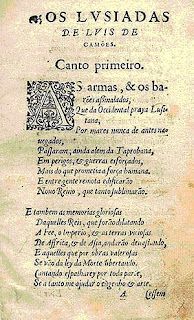 OS LVSIADAS
DE LVIS DE
CAMÕES.
Canto primeiro.
AS armas, & os ba-
rões assinalados,
Que da Occidental praya Lusi-
tana,
Por mares nunca de antes na-
uegados,
Passaram, ainda alem da Taprobana,
Em perigos, & guerras esforçados,
Mais do que prometia a força humana.
E entre gente remota edificarão
Nouo Reino, que tanto sublimarão.
E tambem as memorias gloriosas
Daquelles Reis, que forão dilatando
A Fee, o Imperio, & as terras viciosas
De Affrica, & de Asia, andarão deuastando,
E aquelles que por obras valerosas
Se vão da ley da Morte libertando.
Cantando espalharey por toda parte,
Se a tanto me ajudar o engenho & arte.
A Cessem